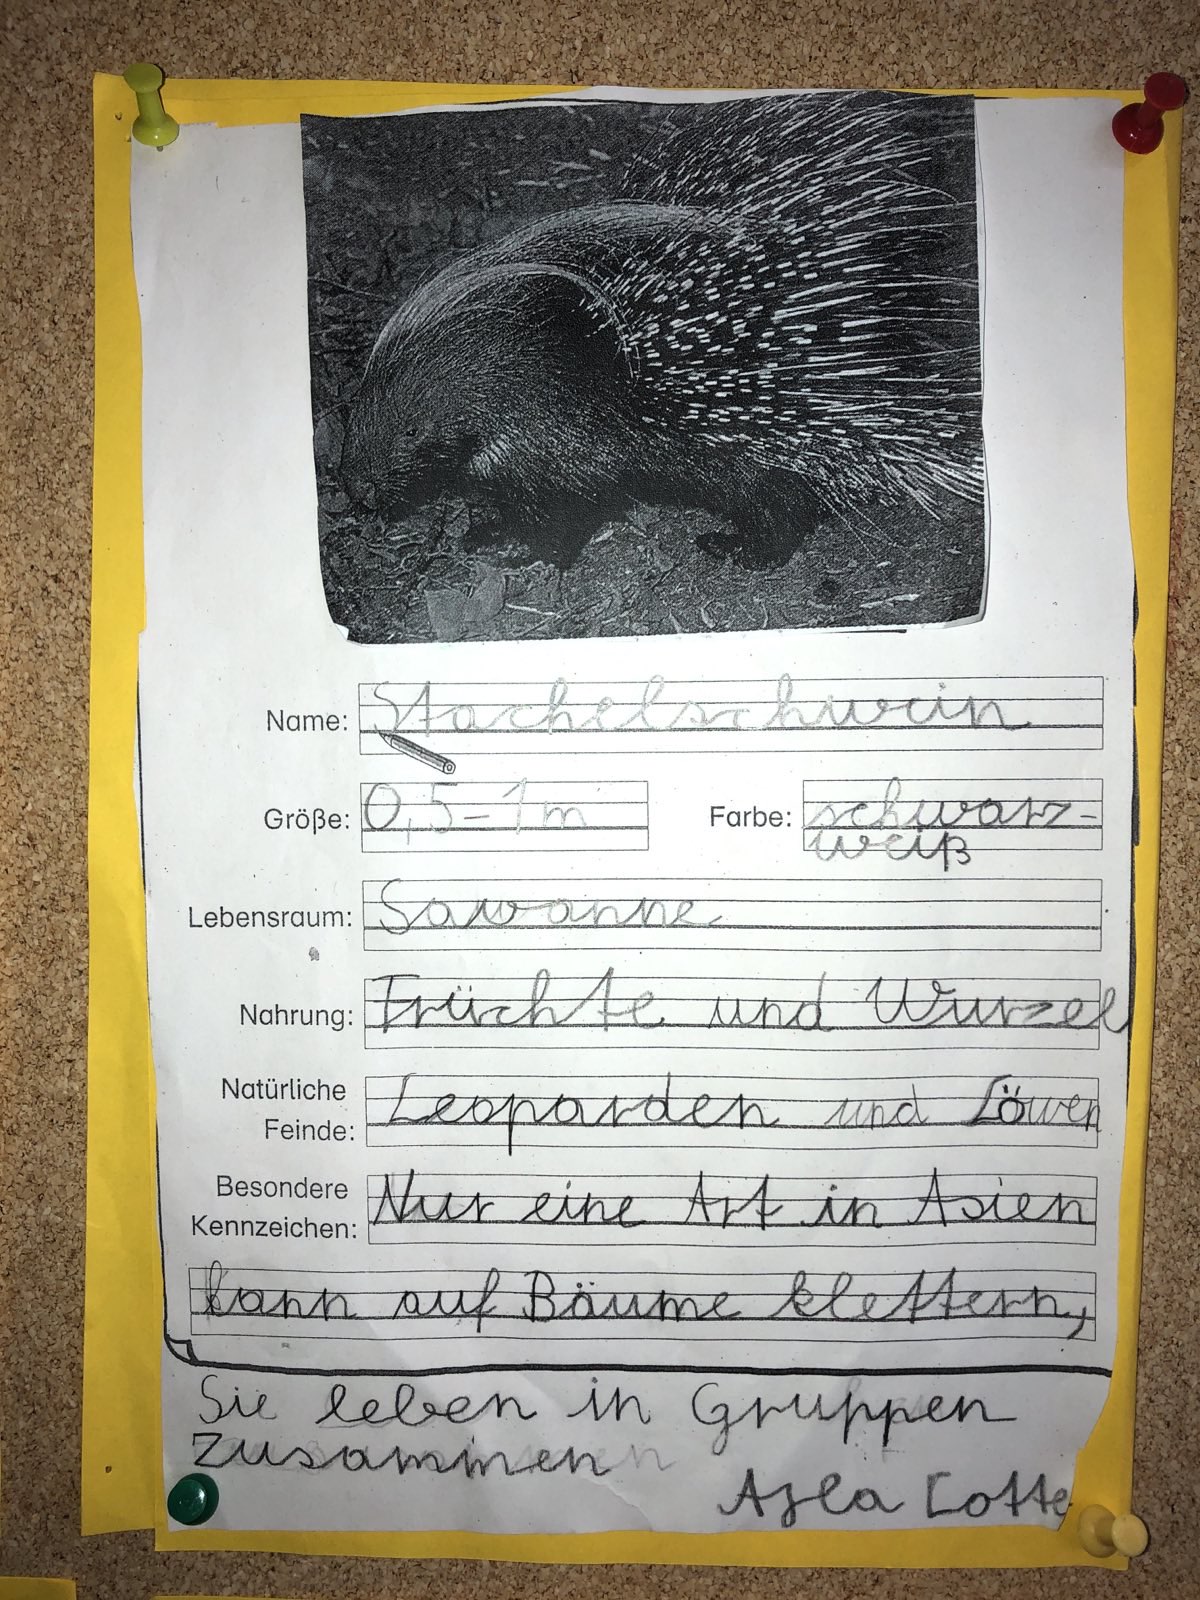 Name: Stachelschwein
Größe: 0,5-1m Farbe: schwarz-
weiß
Lebensraum: Sawanne
Nahrung: Früchte und Wurzel
Natürliche
Feinde: Leoparden und Löwen
Besondere
Kennzeichen: Nur eine Art in Asien
kann auf Bäume klettern,
Sie leben in Gruppen
zusammen
Lotte